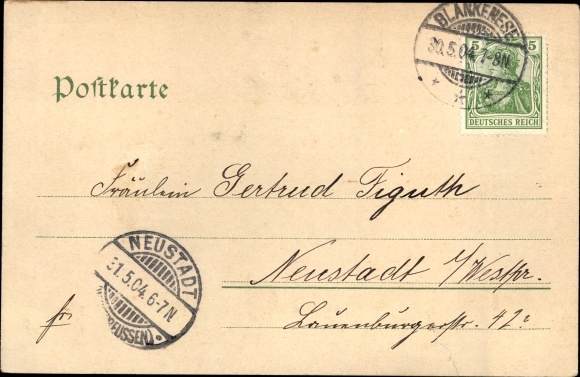 BLANKENESE
30.5.04.7-8N.
* * *
5 5
DEUTSCHES REICH
Postkarte
Fräulein Gertrud Figuth
Neustadt i/Westpr.
Lauenburgerstr. 42
NEUSTADT
31.5.04. 6-7N
fr.